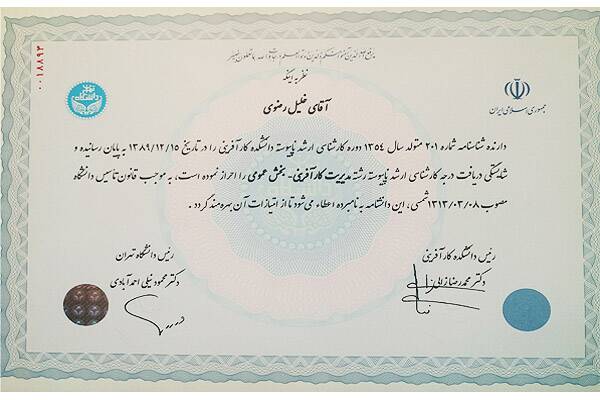 یرفع الله الذین آمنوا منکم والذین اوتوا العلم درجات والله بما تعملون خبیر
نظر به اینکه
جمهوری اسلامی ایران
دانشگاه تهران
۰۰۱۸۸۹۳
آقای خلیل رضوی
دارنده شناسنامه شماره ۲۰۱ متولد سال ۱۳۵۴ دوره کارشناسی ارشد ناپیوسته دانشکده کارآفرینی را در تاریخ ۱۳۸۹/۱۲/۱۵ به پایان رسانیده و
شایستگی دریافت درجه کارشناسی ارشد ناپیوسته رشته مدیریت کارآفرینی- بخش عمومی را احراز نموده است، به موجب قانون تاسیس دانشگاه
مصوب ۱۳۱۳/۰۳/۰۸ شمسی، این دانشنامه به نامبرده اعطاء می‌شود تا از امتیازات آن بهره‌مند گردد .
رئیس دانشکده کارآفرینی
دکتر محمدرضا زالی
رئیس دانشگاه تهران
دکتر محمود نیلی احمدآبادی